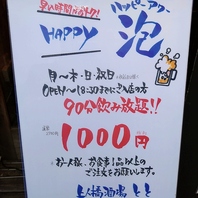 早い時間がおトク!
ハッピーアワー
HAPPY 泡
月〜木・日・祝日
OPEN〜18:30までご入店の方
90分飲み放題!!
1000円
お一人様、お食事1品以上の
ご注文をお願いします。